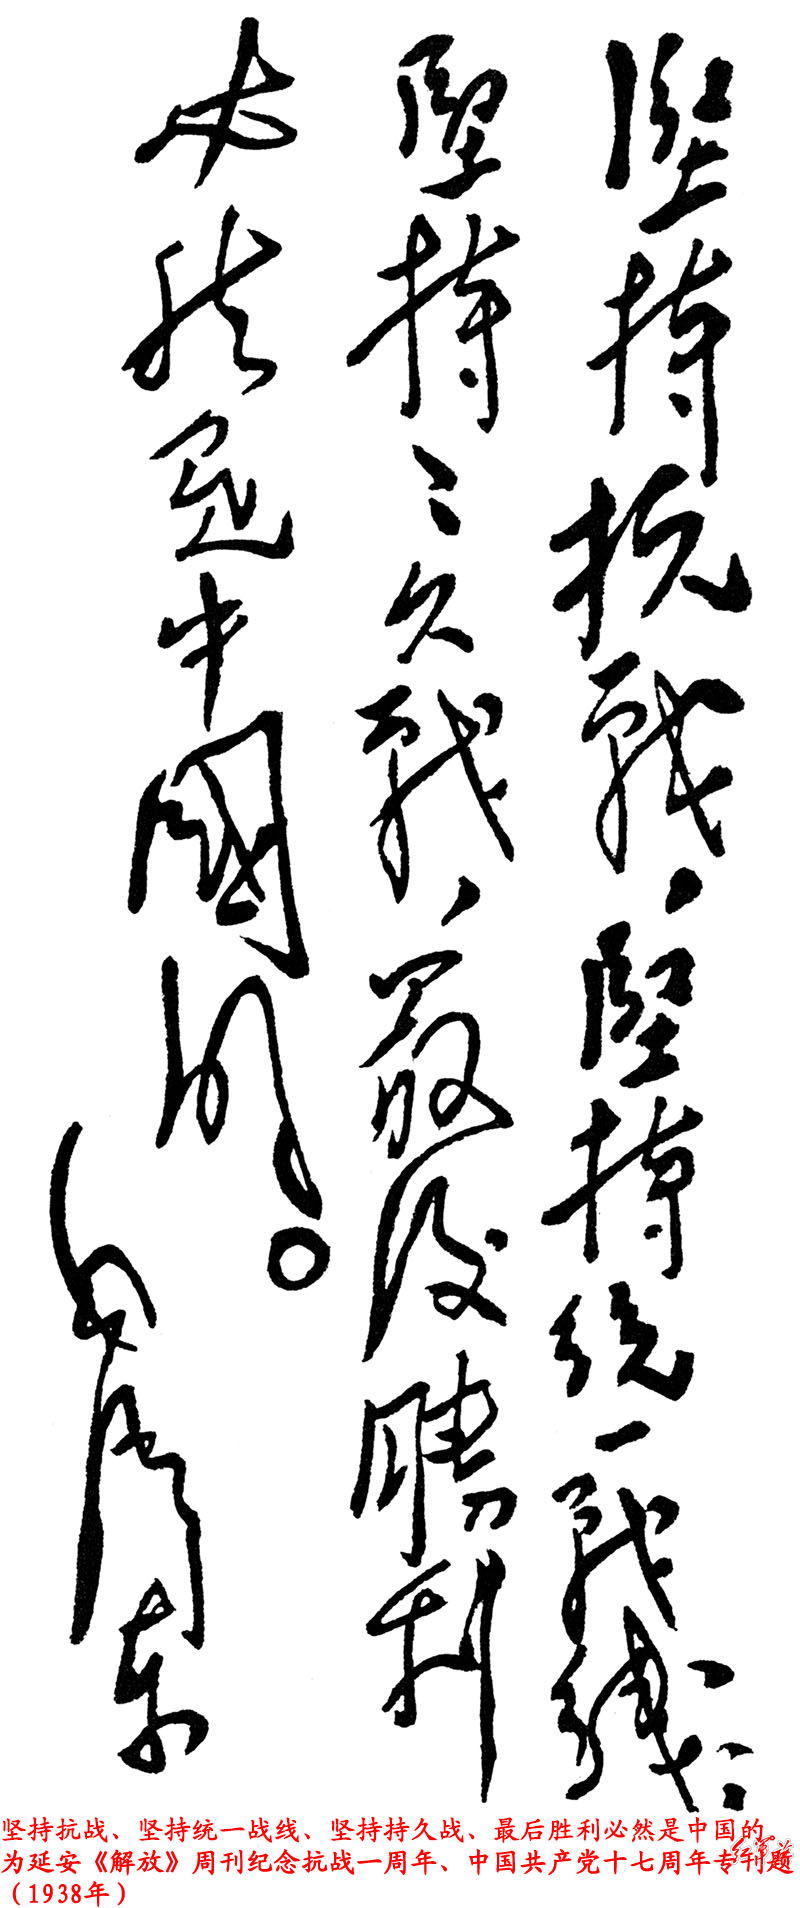 坚持抗戰、坚持统一戰线、
坚持〻久戰、最後勝利
必然是中國的。
毛泽东
坚持抗战、坚持统一战线、坚持持久战、最后胜利必然是中国的
为延安《解放》周刊纪念抗战一周年、中国共产党十七周年专刊题
（1938年）
红军爷